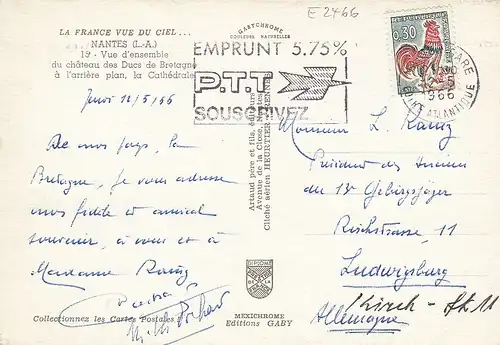 E 2466
LA FRANCE VUE DU CIEL...
NANTES (L.-A.)
15 - Vue d'ensemble
du château des Ducs de Bretagne
à l'arrière plan, la Cathédrale
GABYCHROME
COULEURS NATURELLES
EMPRUNT 5.75%
P.T.T
SOUSCRIVEZ
0,30
GARE
1966
LOIRE ATLANTIQUE
Jeudi 12/5/66
De mon pays, la
Bretagne, je vous adresse
mon fidèle et amical
souvenir, à vous et à
Madame
Artaud père et fils, éditeurs
Avenue de la Close, Nantes
Cliché aérien HEURTIER
Monsieur L.
Président des Anciens
du 13e Gebirgsjäger
Reichstrasse 11
Ludwigsburg
Kirch - Str 11
Allemagne
Collectionnez les Cartes Postales !
MEXICHROME
Editions GABY